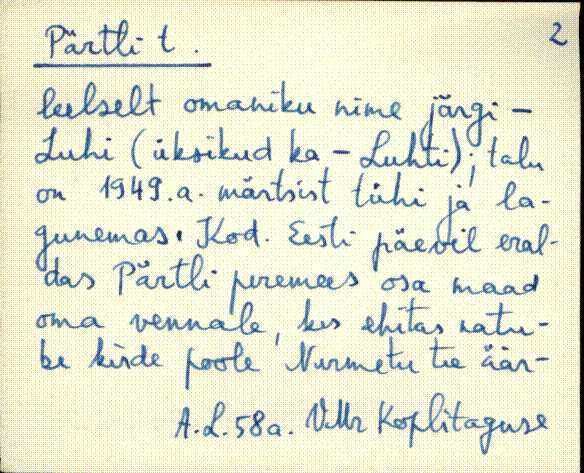 Pärtli t. 2
leelselt omaniku nime järgi -
Luhi (üksikud ka - Luhti); talu
on 1949.a. märtsist tühi ja la-
gunemas. Kod. Eesti päevil eral-
das Pärtli peremees osa maad
oma vennale, kes ehitas natu-
ke kirde poole Nurmetu tee äär-
A.L.58a. VMr Koplitaguse